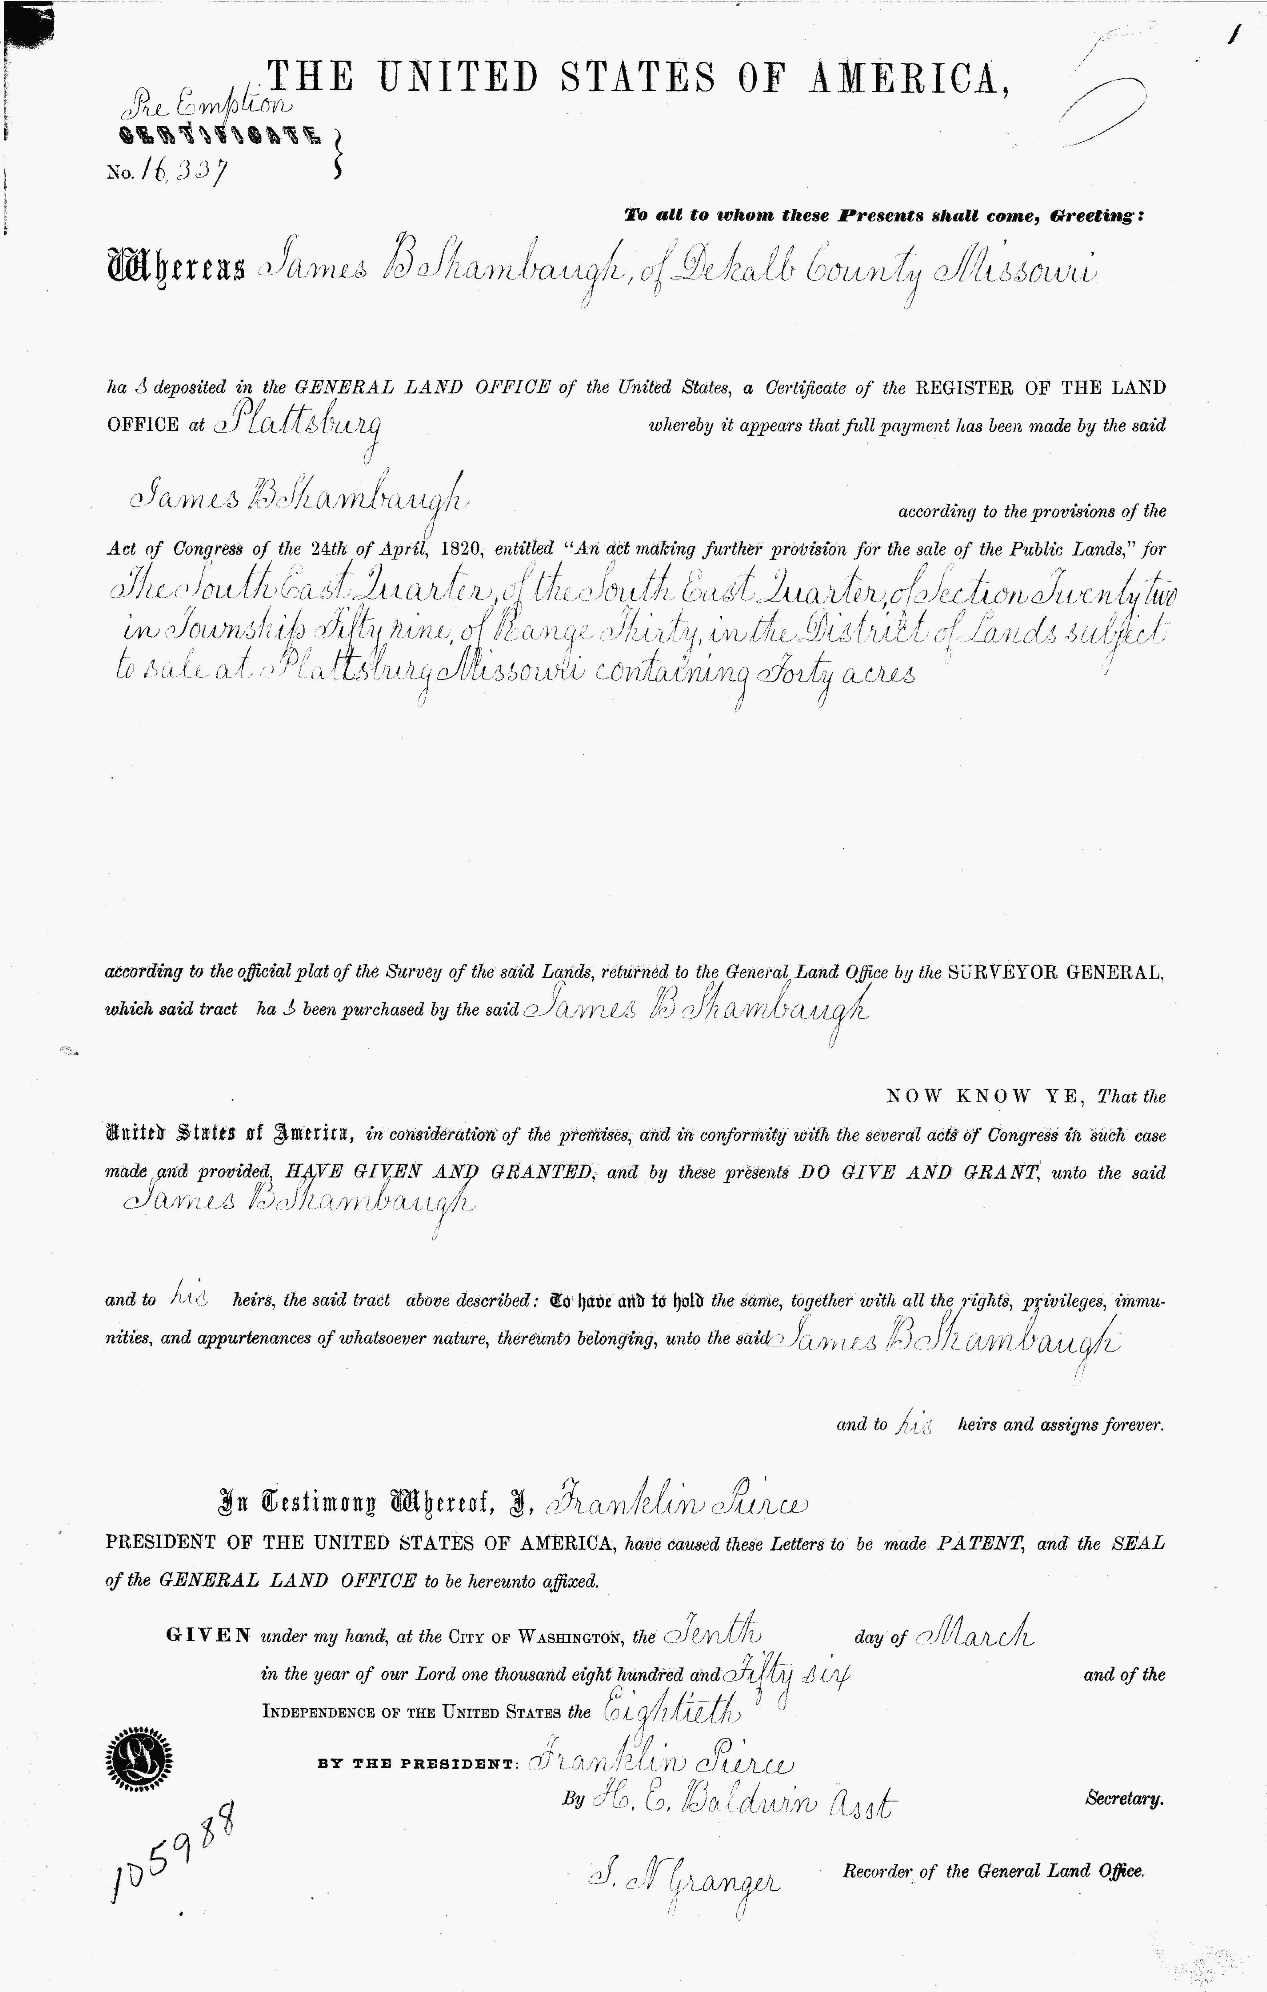 1
THE UNITED STATES OF AMERICA,
Pre Emption
CERTIFICATE
No. 16,337
To all to whom these Presents shall come, Greeting:
Whereas James B Shambaugh, of Dekalb County Missouri
ha s deposited in the GENERAL LAND OFFICE of the United States, a Certificate of the REGISTER OF THE LAND
OFFICE at Plattsburg whereby it appears that full payment has been made by the said
James B Shambaugh according to the provisions of the
Act of Congress of the 24th of April, 1820, entitled "An act making further provision for the sale of the Public Lands," for
The South East Quarter, of the South East Quarter, of Section Twenty two
in Township Fifty nine, of Range Thirty, in the District of Lands subject
to sale at Plattsburg Missouri containing Forty acres
according to the official plat of the Survey of the said Lands, returned to the General Land Office by the SURVEYOR GENERAL,
which said tract ha s been purchased by the said James B Shambaugh
NOW KNOW YE, That the
United States of America, in consideration of the premises, and in conformity with the several acts of Congress in such case
made and provided, HAVE GIVEN AND GRANTED, and by these presents DO GIVE AND GRANT, unto the said
James B Shambaugh
and to his heirs, the said tract above described: To have and to hold the same, together with all the rights, privileges, immu-
nities, and appurtenances of whatsoever nature, thereunto belonging, unto the said James B Shambaugh
and to his heirs and assigns forever.
In Testimony Whereof, I, Franklin Pierce
PRESIDENT OF THE UNITED STATES OF AMERICA, have caused these Letters to be made PATENT, and the SEAL
of the GENERAL LAND OFFICE to be hereunto affixed.
GIVEN under my hand, at the CITY OF WASHINGTON, the Tenth day of March
in the year of our Lord one thousand eight hundred and Fifty six and of the
INDEPENDENCE OF THE UNITED STATES the Eightieth
BY THE PRESIDENT: Franklin Pierce
By H. E. Baldwin Asst Secretary.
J. N Granger Recorder of the General Land Office.
105988